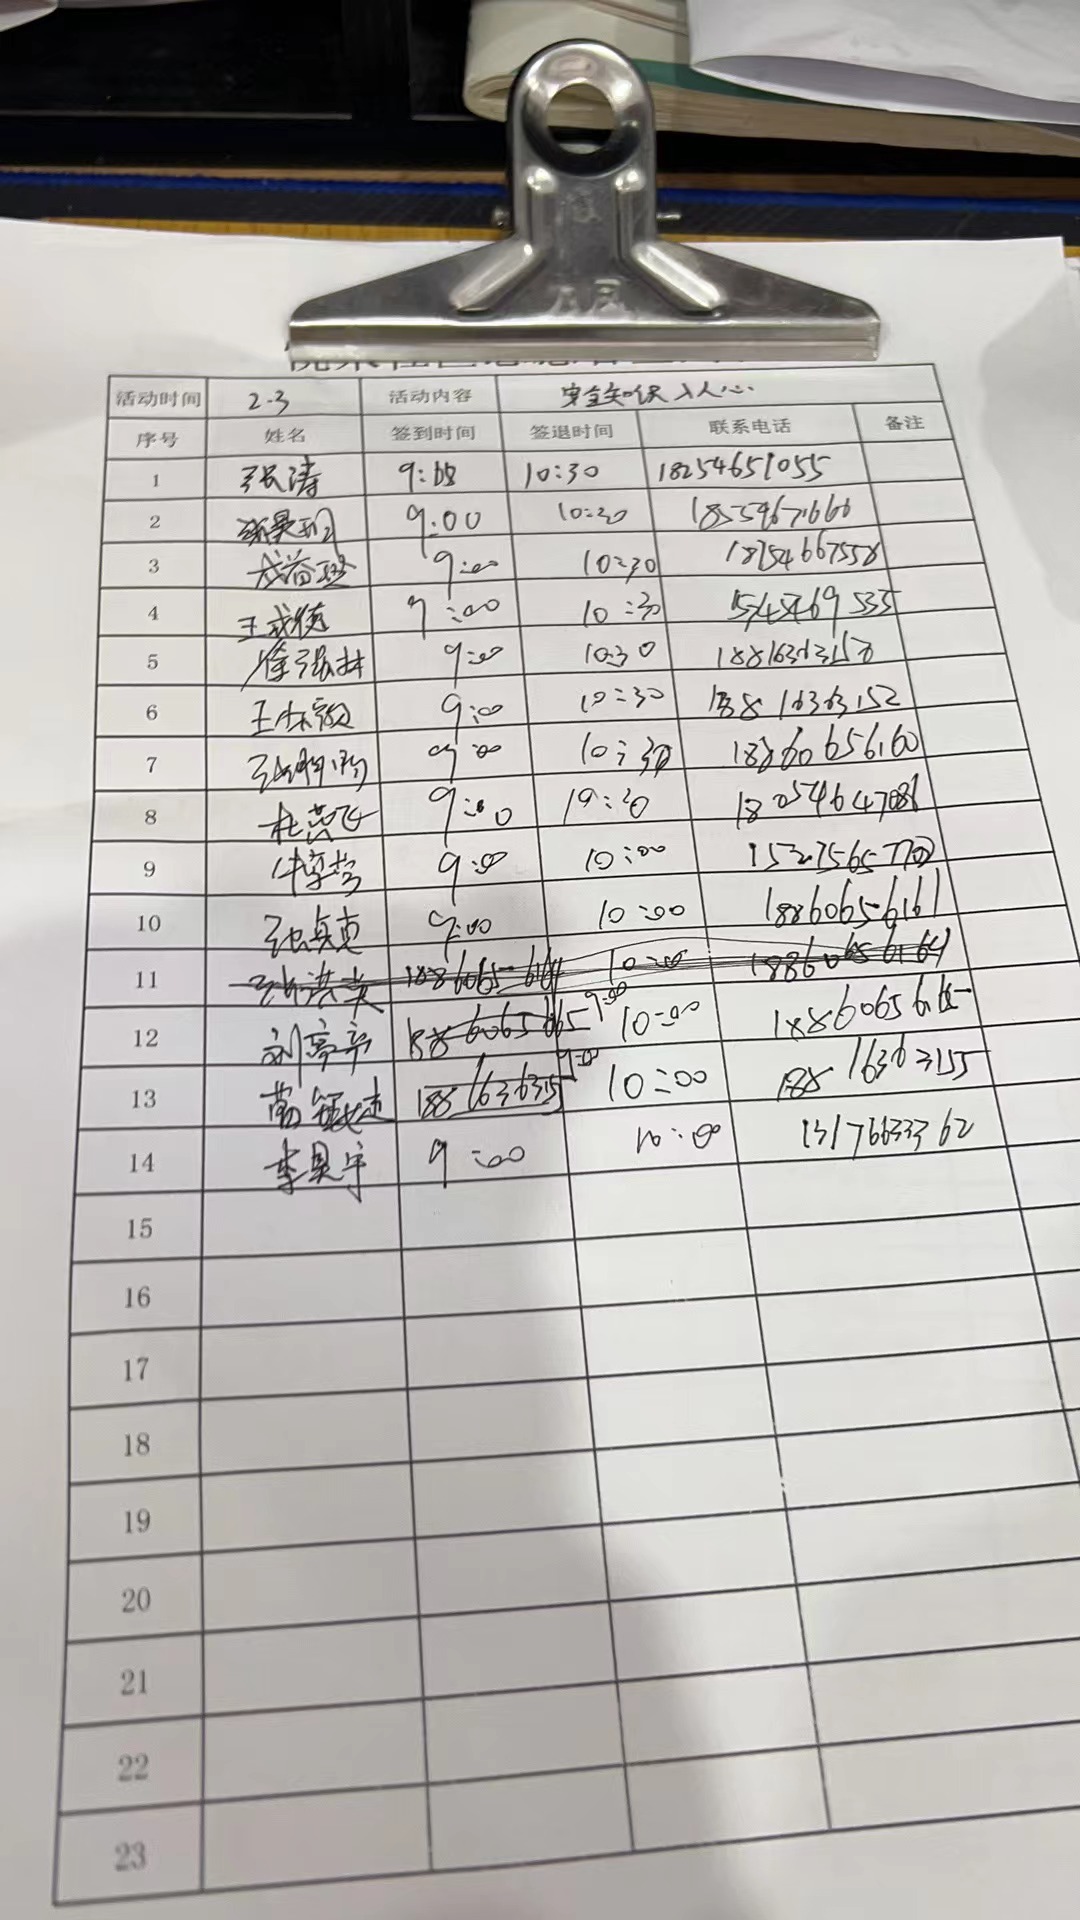 活动时间 2.3 活动内容 安全知识入人心
序号 姓名 签到时间 签退时间 联系电话 备注
1 张涛 9:00 10:30 18254651055
2 9:00 10:30 18554671666
3 9:00 10:30 18254667558
4 王成德 9:00 10:30
5 徐强林 9:00 10:30 18816363158
6 9:00 10:30 18816363152
7 9:00 10:30 18860656160
8 杜洪飞 9:00
9 9:00 10:00
10 张真真 9:00 10:00 18860656161
11 18860656164 10:00 18860656164
12 刘亭亭 18860656165 9:00 10:00 18860656165
13 18816363155 9:00 10:00 18816363155
14 李昊宇 9:00 10:00 13176633362
15
16
17
18
19
20
21
22
23